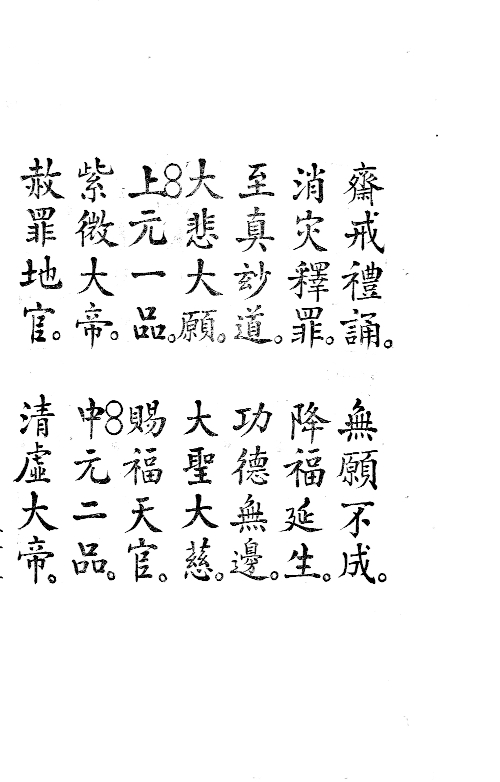 齋戒禮誦。無願不成。
消灾釋罪。降福延生。
至真玅道。功德無邊。
大悲大願。大聖大慈。
上元一品。賜福天官。
紫微大帝。中元二品。
赦罪地官。清虛大帝。